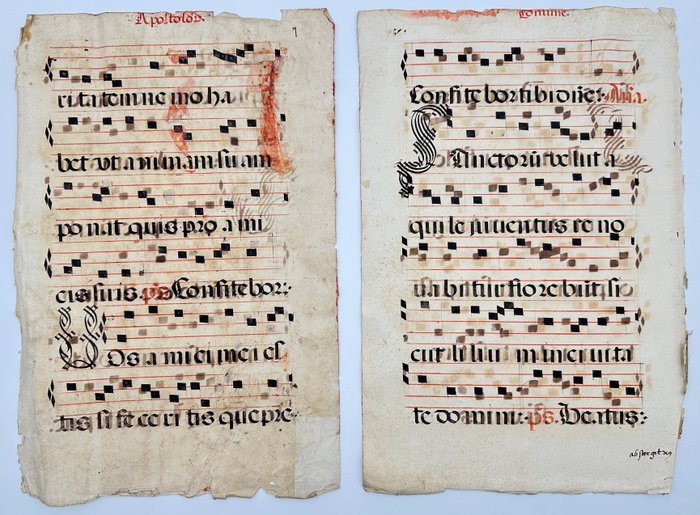 Apostolor̃.
ritatem nemo ha
bet vt animam suam
ponat quis pro ami
cis suis. ps̃ Confitebor:
Uos amici mei es
tis si feceritis que pre
Comune.
Confitebor tibi dñe: Aña.
Sanctorũ velut a
qui le juventus reno
uabitur florebũt si
cut lilium in ciuita
te domini: ps̃. Beatus:
absterget deus